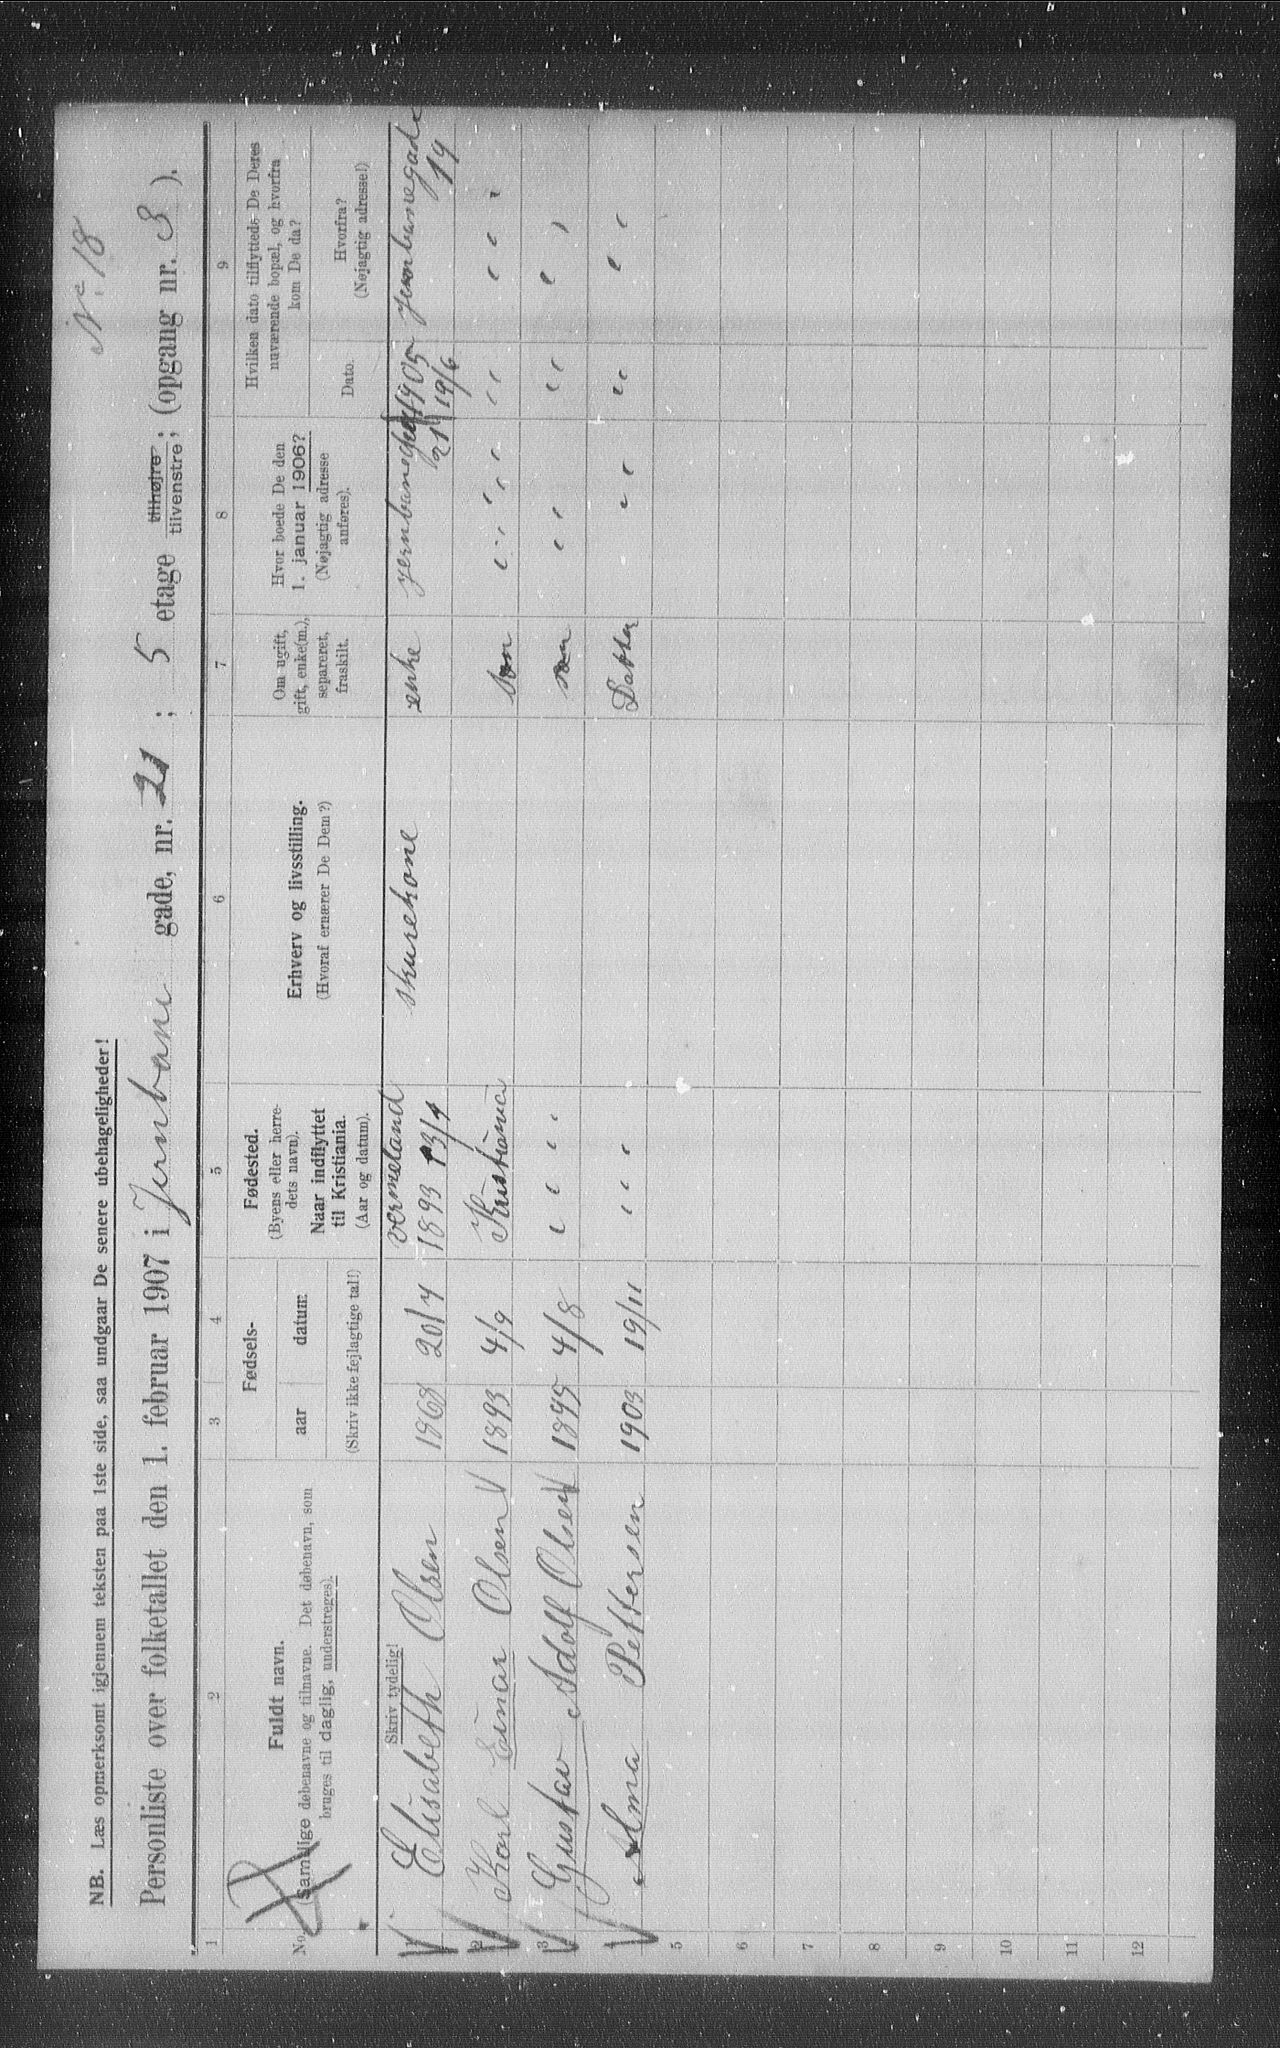 Nº 18
NB. Læs opmerksomt igjennem teksten paa 1ste side, saa undgaar De senere ubehageligheder!
Personliste over folketallet den 1. februar 1907 i Jernbane gade, nr. 21 ; 5 etage tilhøjre, tilvenstre; (opgang nr. 3 ).
1 2 3 4 5 6 7 8 9
No.
Fuldt navn.
(Samtlige døbenavne og tilnavne. Det døbenavn, som
bruges til daglig, understreges).
Fødsels-
aar datum
(Skriv ikke fejlagtige tal!)
Fødested.
(Byens eller herre-
dets navn).
Naar indflyttet
til Kristiania.
(Aar og datum).
Erhverv og livsstilling.
(Hvoraf ernærer De Dem?)
Om ugift,
gift, enke(m.),
separeret,
fraskilt.
Hvor boede De den
1. januar 1906?
(Nøjagtig adresse
anføres).
Hvilken dato tilflyttede De Deres
nuværende bopæl, og hvorfra
kom De da?
Dato.
Hvorfra?
(Nøjagtig adresse!)
Skriv tydelig!
1 Elisabeth Olsen 1868 20/4 vermeland 1893 13/4 skurekone enke jernbanegad 21 1905 19/6 jernbanegade 19
2 Karl Einar Olsen 1893 4/9 Kristiania søn " " " " " " "
3 Gustav Adolf Olsen 1895 4/8 " " " " søn " " " " " "
4 Alma Pettersen 1903 19/11 " " " Datter " " " " " "
5
6
7
8
9
10
11
12